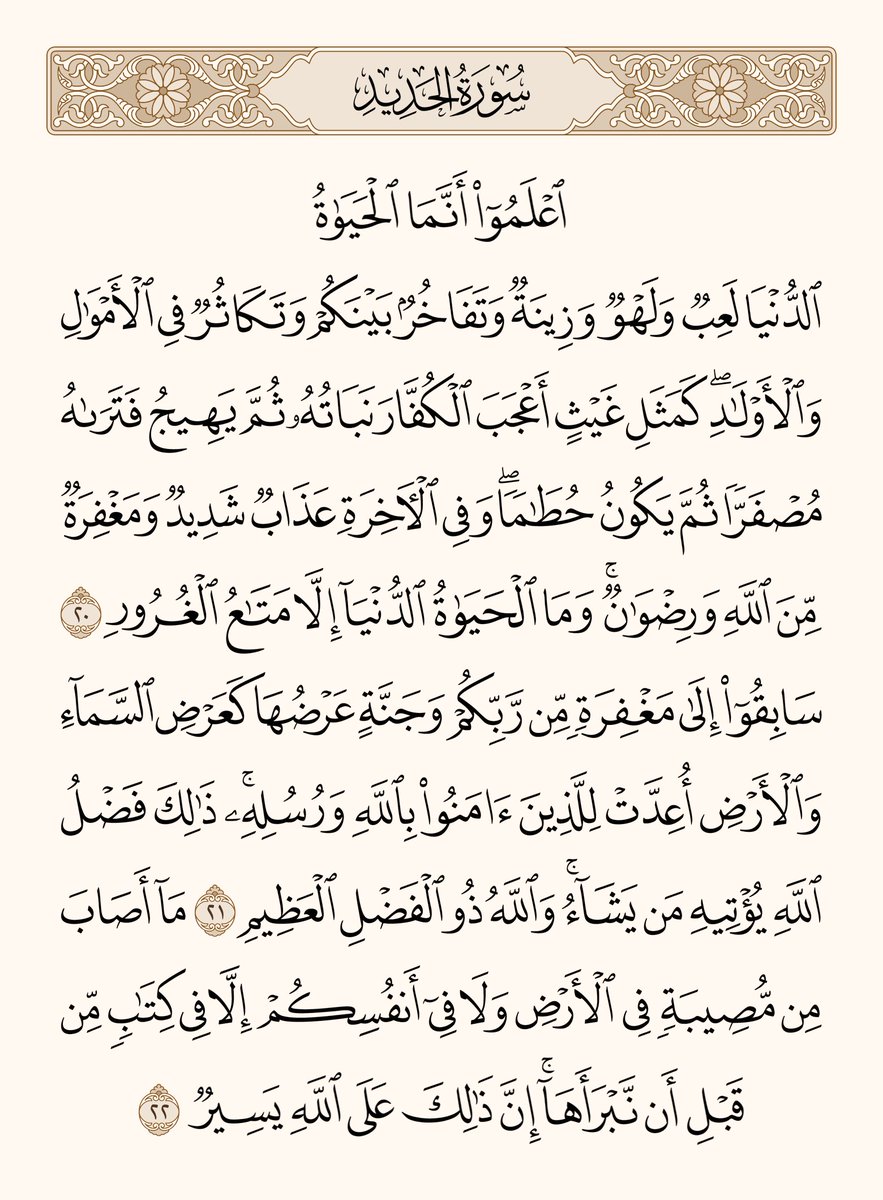 سُورَةُ الحَدِيدِ
ٱعۡلَمُوٓاْ أَنَّمَا ٱلۡحَيَوٰةُ
ٱلدُّنۡيَا لَعِبٞ وَلَهۡوٞ وَزِينَةٞ وَتَفَاخُرُۢ بَيۡنَكُمۡ وَتَكَاثُرٞ فِي ٱلۡأَمۡوَٰلِ
وَٱلۡأَوۡلَٰدِۖ كَمَثَلِ غَيۡثٍ أَعۡجَبَ ٱلۡكُفَّارَ نَبَاتُهُۥ ثُمَّ يَهِيجُ فَتَرَىٰهُ
مُصۡفَرّٗا ثُمَّ يَكُونُ حُطَٰمٗاۖ وَفِي ٱلۡأٓخِرَةِ عَذَابٞ شَدِيدٞ وَمَغۡفِرَةٞ
مِّنَ ٱللَّهِ وَرِضۡوَٰنٞۚ وَمَا ٱلۡحَيَوٰةُ ٱلدُّنۡيَآ إِلَّا مَتَٰعُ ٱلۡغُرُورِ ٢٠
سَابِقُوٓاْ إِلَىٰ مَغۡفِرَةٖ مِّن رَّبِّكُمۡ وَجَنَّةٍ عَرۡضُهَا كَعَرۡضِ ٱلسَّمَآءِ
وَٱلۡأَرۡضِ أُعِدَّتۡ لِلَّذِينَ ءَامَنُواْ بِٱللَّهِ وَرُسُلِهِۦۚ ذَٰلِكَ فَضۡلُ
ٱللَّهِ يُؤۡتِيهِ مَن يَشَآءُۚ وَٱللَّهُ ذُو ٱلۡفَضۡلِ ٱلۡعَظِيمِ ٢١ مَآ أَصَابَ
مِن مُّصِيبَةٖ فِي ٱلۡأَرۡضِ وَلَا فِيٓ أَنفُسِكُمۡ إِلَّا فِي كِتَٰبٖ مِّن
قَبۡلِ أَن نَّبۡرَأَهَآۚ إِنَّ ذَٰلِكَ عَلَى ٱللَّهِ يَسِيرٞ ٢٢